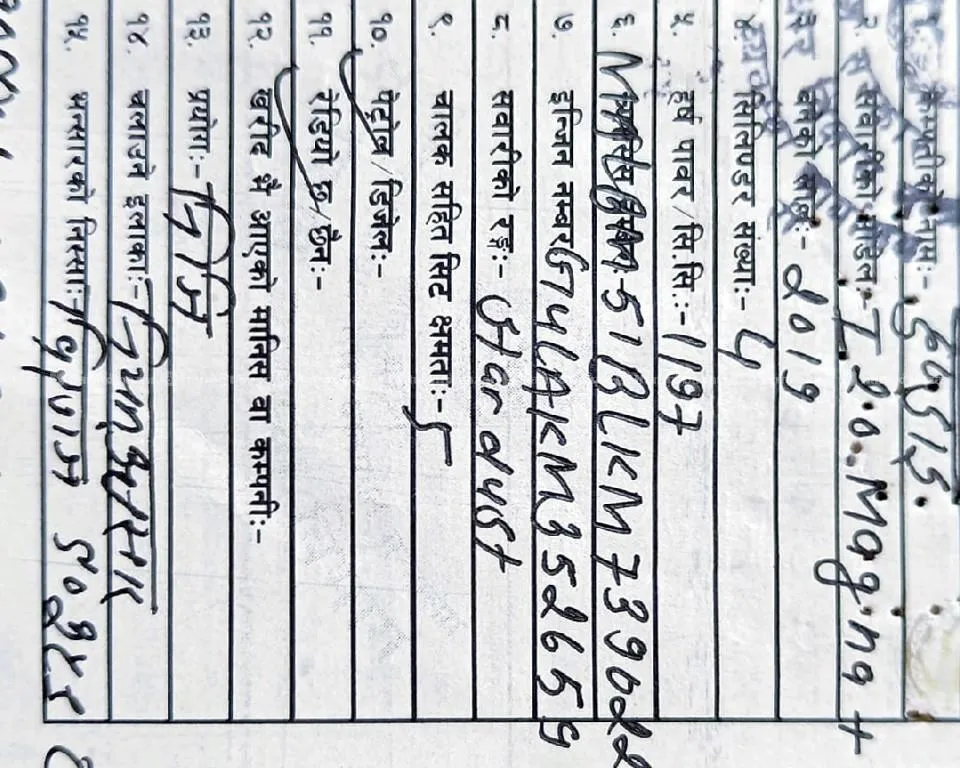 कम्पनीको नाम:-
सवारीको मोडेल:- I 20. Magna +
बनेको साल:- 2019
सिलिण्डर संख्या:- 4
५. हर्ष पावर/सि.सि.:- 1197
६. MALBM51BLKM739022
७. इन्जिन नम्बर G4LAKM352659
८. सवारीको रङ्ग:- Star dust
९. चालक सहित सिट क्षमता:- 5
१०. पेट्रोल/डिजेल:-
११. रेडियो छ/छैन:-
१२. खरीद भै आएको मासिस वा कम्पनी:-
१३. प्रयोग:- निजि
१४. चलाउने इलाका:- नियमानुसार
१५. भन्सारको निस्सा:-